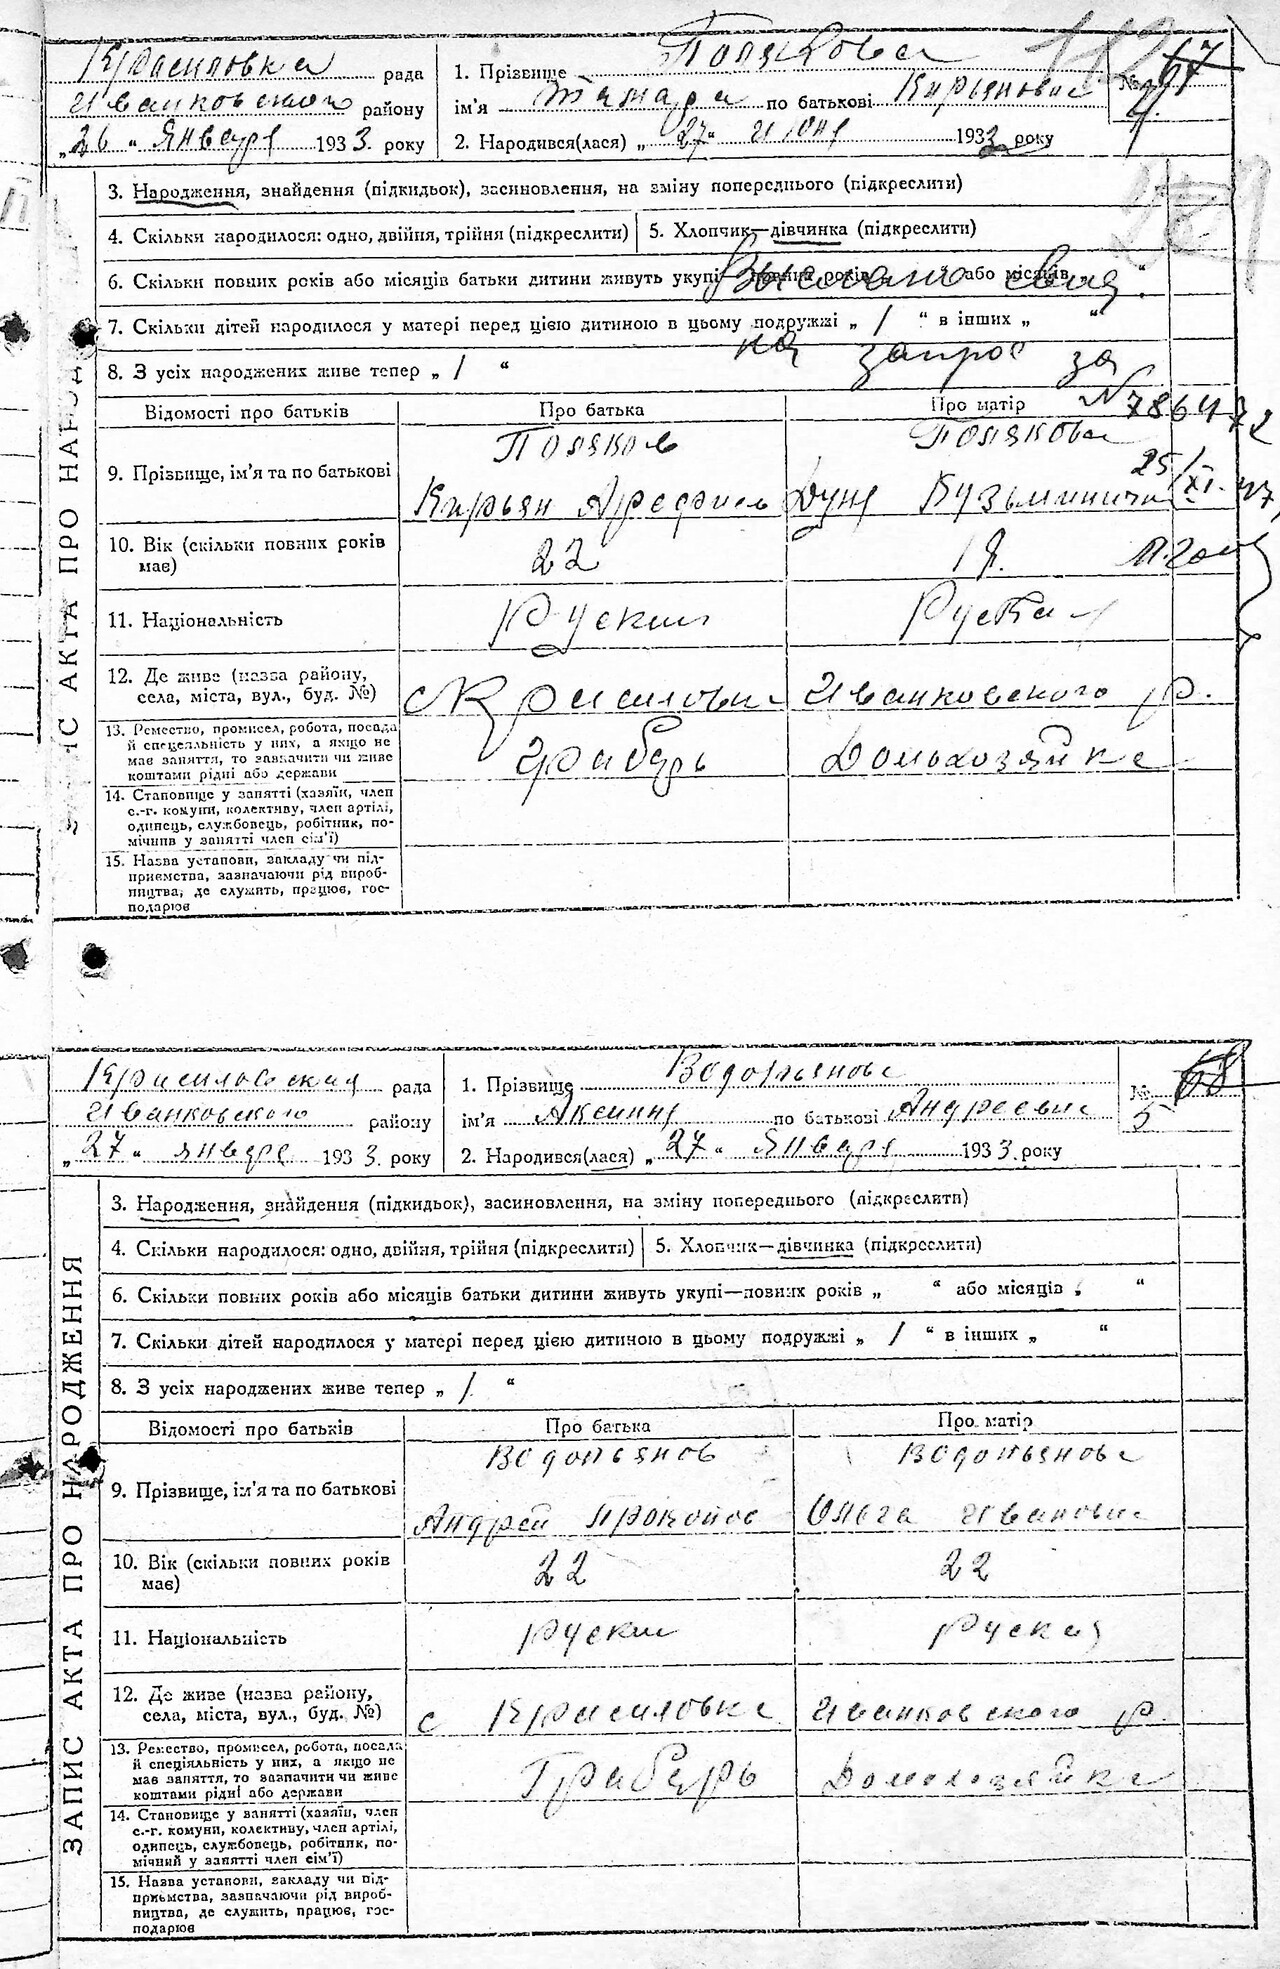 Красиловка рада
Иванковского районy
„26“ Января 1933. року
1. Прізвище Полякова
ім'я Тамара по батькові Кирьяновна
2. Народився(лася) „27“ 1932 року
№ 67
4.
3. Народження, знайдення (підкидьок), засиновлення, на зміну попереднього (підкреслити)
4. Скільки народилося: одно, двійня, трійня (підкреслити) 5. Хлопчик—дівчинка (підкреслити)
6. Скільки повних років або місяців батьки дитини живуть укупі—повних років „ “ або місяців „ “
Выслано
7. Скільки дітей народилося у матері перед цією дитиною в цьому подружжі „ / “ в інших „ “
на запрос за
8. З усіх народжених живе тепер „ / “
N 786472
Відомості про батьків Про батька Про матір
Поляков Полякова
25/XI-47
9. Прізвище, ім'я та по батькові
Кирьян Дуня Кузьминична
10. Вік (скільки повних років має) 22
11. Національність Руский Руская
12. Де живе (назва району, села, міста, вул., буд. №) с Красиловка Иванковского р.
13. Ремество, промисел, робота, посада
й спеціяльність у них, а якщо не
має заняття, то зазначити чи живе
коштами рідні або держави
Грабарь Домохозяйка
14. Становище у занятті (хазяїн, член
с.-г. комуни, колективу, член артілі,
одинець, службовець, робітник, по-
мічник у занятті член сім'ї)
15. Назва установи, закладу чи під-
приємства, зазначаючи рід вироб-
ництва, де служить, працює, гос-
подарює
ЗАПИС АКТА ПРО НАРОД
Красиловская рада
Иванковского району
„27“ января 1933. року
1. Прізвище Водопьянова
ім'я Аксиния по батькові Андреевна
2. Народився(лася) „27“ Января 1933. року
№ 68
5
3. Народження, знайдення (підкидьок), засиновлення, на зміну попереднього (підкреслити)
4. Скільки народилося: одно, двійня, трійня (підкреслити) 5. Хлопчик—дівчинка (підкреслити)
6. Скільки повних років або місяців батьки дитини живуть укупі—повних років „ “ або місяців „ “
7. Скільки дітей народилося у матері перед цією дитиною в цьому подружжі „ / “ в інших „ “
8. З усіх народжених живе тепер „ / “
Відомості про батьків Про батька Про матір
Водопьянов Водопьянова
9. Прізвище, ім'я та по батькові
Андрей Прокопов Ольга Ивановна
10. Вік (скільки повних років має) 22 22
11. Національність руский руская
12. Де живе (назва району, села, міста, вул., буд. №) с Красиловка Иванковского р.
13. Ремество, промисел, робота, посада
й спеціяльність у них, а якщо не
має заняття, то зазначити чи живе
коштами рідні або держави
Грабарь Домохозяйка
14. Становище у занятті (хазяїн, член
с.-г. комуни, колективу, член артілі,
одинець, службовець, робітник, по-
мічний у занятті член сім'ї)
15. Назва установи, закладу чи під-
приємства, зазначаючи рід вироб-
ництва, де служить, працює, гос-
подарює
ЗАПИС АКТА ПРО НАРОДЖЕННЯ